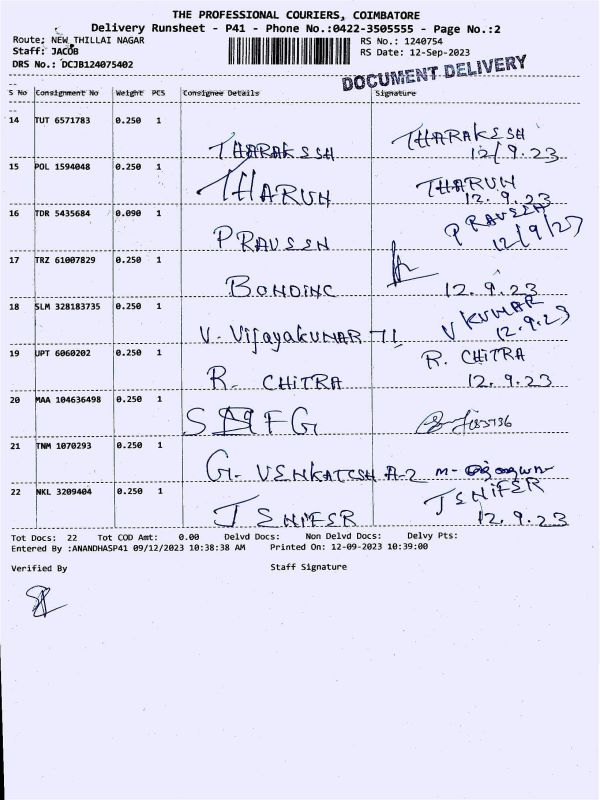 THE PROFESSIONAL COURIERS, COIMBATORE
Delivery Runsheet - P41 - Phone No.:0422-3505555 - Page No.:2
Route: NEW THILLAI NAGAR RS No.: 1240754
Staff: JACOB RS Date: 12-Sep-2023
DRS No.: DCJB124075402
DOCUMENT DELIVERY
S No Consignment No Weight PCS Consignee Details Signature
14 TUT 6571783 0.250 1
THARAKESH THARAKESH
12/9.23
15 POL 1594048 0.250 1
THARUN THARUN
12.9.23
16 TDR 5435684 0.090 1
PRAVEEN PRAVEEN
12/9/23
17 TRZ 61007829 0.250 1
BONDINC 12.9.23
18 SLM 328183735 0.250 1
V. VijayaKUMAR 71 V KUMAR
12.9.23
19 UPT 6060202 0.250 1
R. CHITRA R. CHITRA
12.9.23
20 MAA 104636498 0.250 1
21 TNM 1070293 0.250 1
G. VENKATESH A-2 M-
22 NKL 3209404 0.250 1
JENIFER JENIFER
12.9.23
Tot Docs: 22 Tot COD Amt: 0.00 Delvd Docs: Non Delvd Docs: Delvy Pts:
Entered By :ANANDHASP41 09/12/2023 10:38:38 AM Printed On: 12-09-2023 10:39:00
Verified By Staff Signature